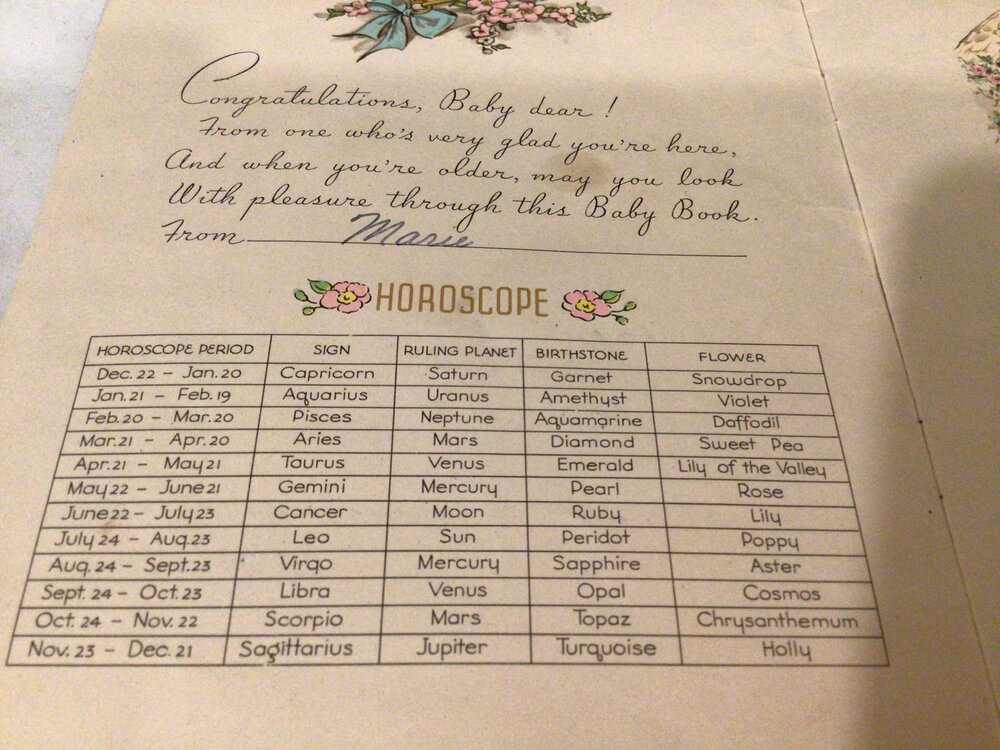 Congratulations, Baby dear!
From one who's very glad you're here,
And when you're older, may you look
With pleasure through this Baby Book.
From Marie
HOROSCOPE
HOROSCOPE PERIOD SIGN RULING PLANET BIRTHSTONE FLOWER
Dec. 22 - Jan. 20 Capricorn Saturn Garnet Snowdrop
Jan. 21 - Feb. 19 Aquarius Uranus Amethyst Violet
Feb. 20 - Mar. 20 Pisces Neptune Aquamarine Daffodil
Mar. 21 - Apr. 20 Aries Mars Diamond Sweet Pea
Apr. 21 - May 21 Taurus Venus Emerald Lily of the Valley
May 22 - June 21 Gemini Mercury Pearl Rose
June 22 - July 23 Cancer Moon Ruby Lily
July 24 - Aug. 23 Leo Sun Peridot Poppy
Aug. 24 - Sept. 23 Virgo Mercury Sapphire Aster
Sept. 24 - Oct. 23 Libra Venus Opal Cosmos
Oct. 24 - Nov. 22 Scorpio Mars Topaz Chrysanthemum
Nov. 23 - Dec. 21 Sagittarius Jupiter Turquoise Holly